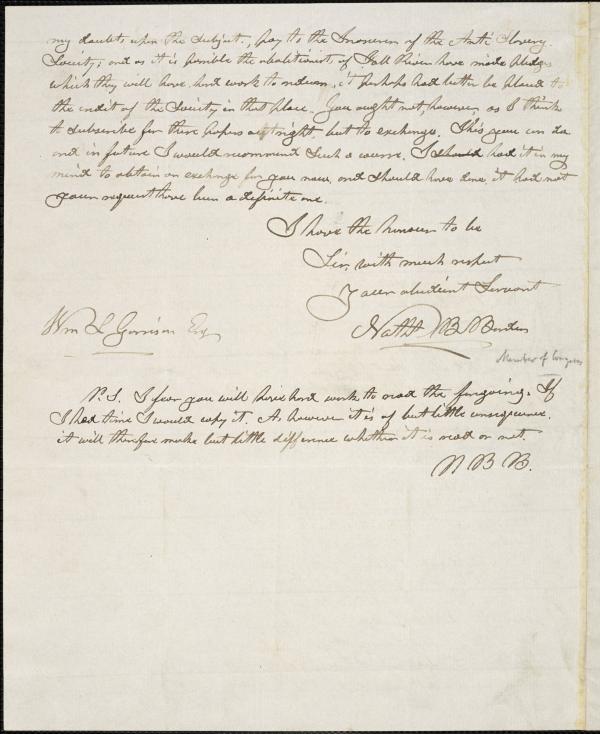 my doubts upon the subject, pay to the Treasurer of the Anti Slavery
Society; and as it is possible the abolitionists of Fall River have made pledges
which they will have hard work to redeem, it perhaps had better be placed to
the credit of the Society in that place. You ought not, however, as I think
to subscribe for these papers outright, but to exchange. This you can do
and in future I would recommend such a course. I should had it in my
mind to obtain an exchange for you now, and should have done it had not
your request have been a definite one.
I have the honour to be
Sir, with much respect
Your obedient Servant
Nathl B. Borden
Wm L Garrison Esq
Member of Congress
P.S. I fear you will have hard work to read the foregoing. If
I had time I would copy it. As however it is of but little consequence,
it will therefore make but little difference whether it is read or not.
N B B.